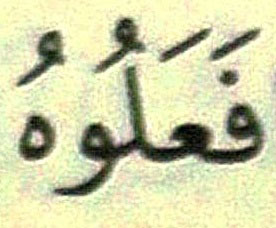 فَعَلُوهُ